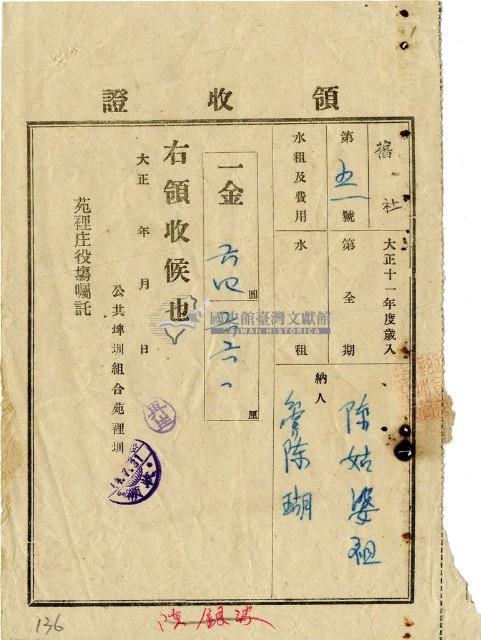 領收證
舊社
第五一號
水租及費用
大正十一年度歲入
第全期
水租
納人
陳姑婆祖
管陳瑚
一金
六四圓
釐
右領收候也
大正年月日
公共埤圳組合苑裡圳
苑裡庄役場囑託
國史館臺灣文獻館
TAIWAN HISTORICA
136